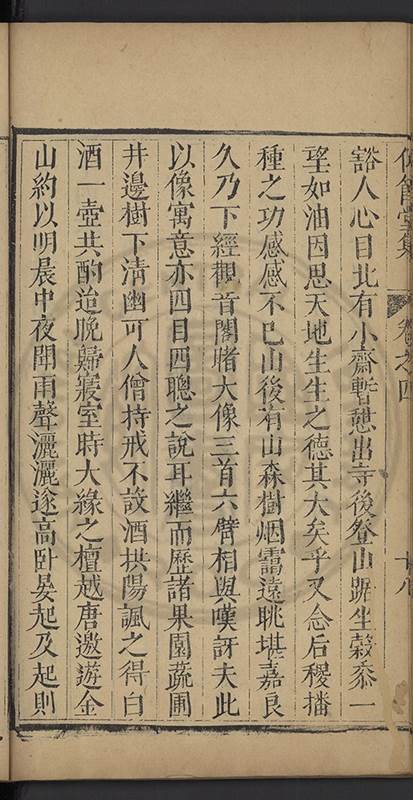 豁人心目北有小齋暫憩出寺後登山踞坐穀黍一
望如油因思天地生生之德其大矣乎又念后稷播
種之功感感不已山後有山森樹烟靄遠眺堪嘉良
久乃下經觀音閣睹大像三首六臂相與嘆訝夫此
以像寓意亦四目四聰之說耳繼而歷諸果園蔬圃
井邊樹下清幽可人僧持戒不設酒拱陽諷之得白
酒一壺共酌迨晚歸寢室時大緣之檀越唐邀遊金
山約以明晨中夜聞雨聲灑灑遂高卧晏起及起則
堂集 卷之四